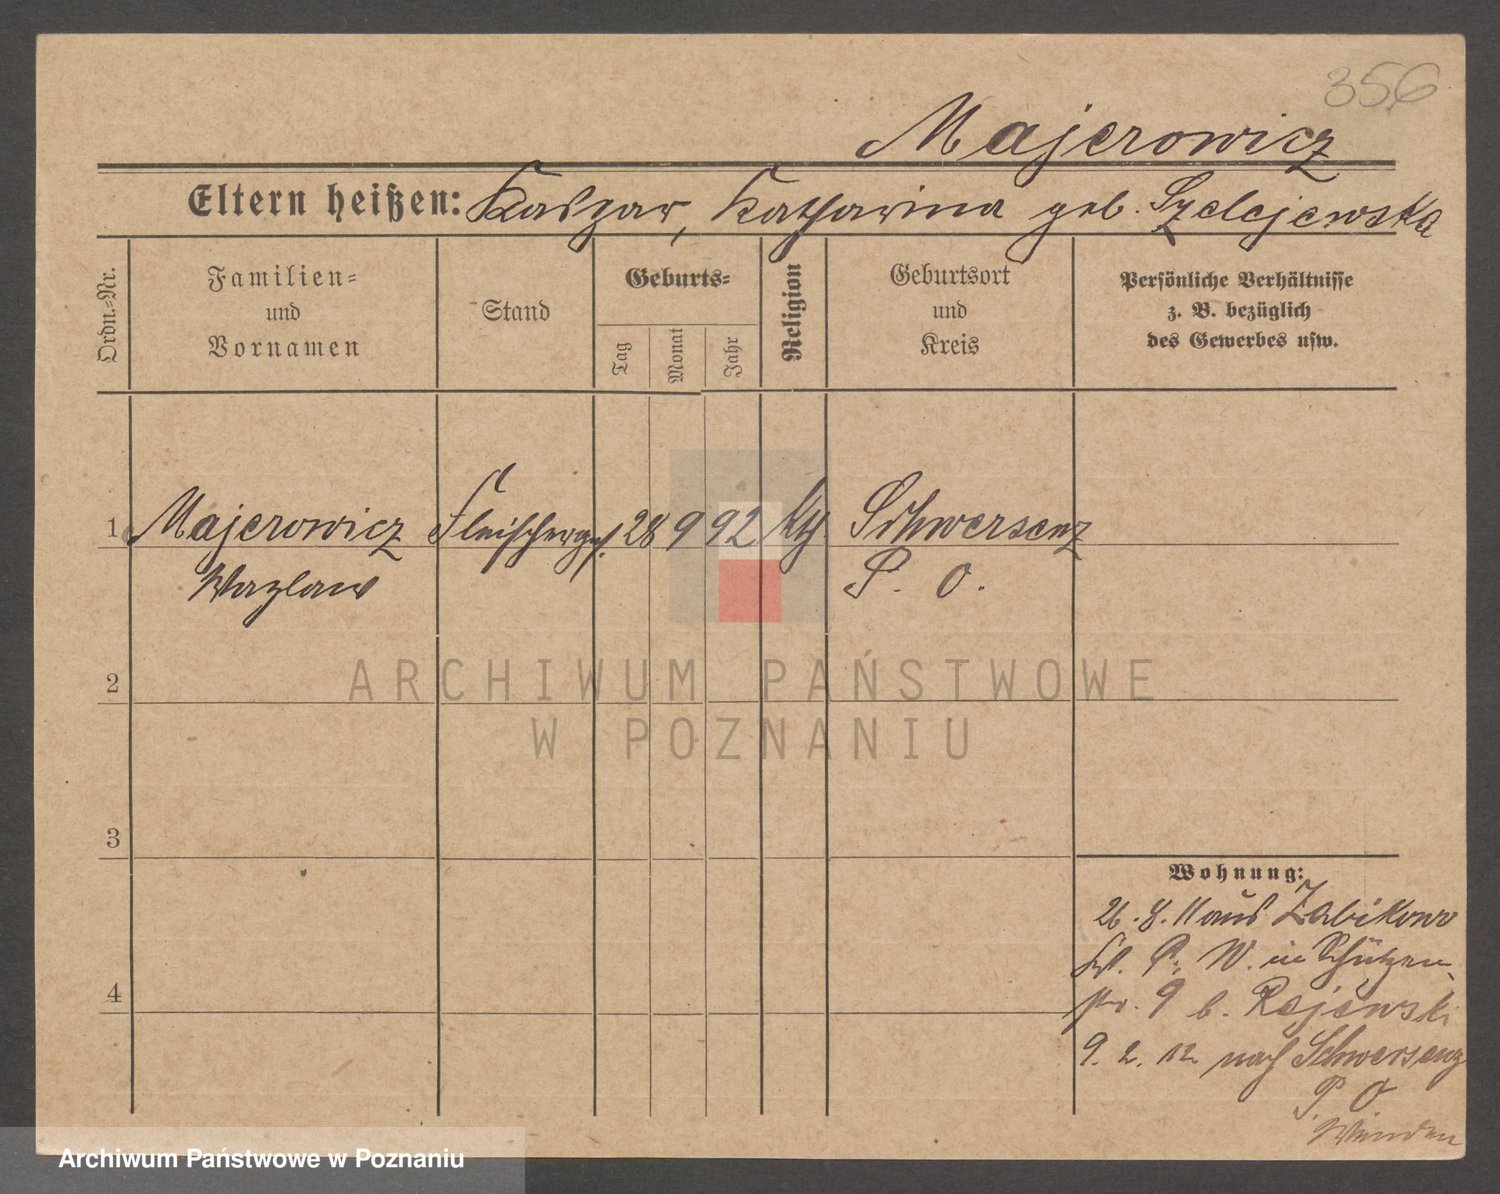 356
Majerowicz
Eltern heißen: Kaspar, Katharina geb. Szelejewska
Ordn.=Nr.
Familien=
und
Vornamen
Stand
Geburts=
Tag
Monat
Jahr
Religion
Geburtsort
und
Kreis
Persönliche Verhältnisse
z. B. bezüglich
des Gewerbes usw.
1 Majerowicz Fleischerges. 28 9 92 kth Schwersenz
Wazlaw P. O.
2
ARCHIWUM PAŃSTWOWE
W POZNANIU
3
Wohnung:
26. 8. 11 aus Zabikowo
P. W. in Schützen
str. 9 b. Rajewski
4
9. 2. 12 nach Schwersenz
P O
Archiwum Państwowe w Poznaniu